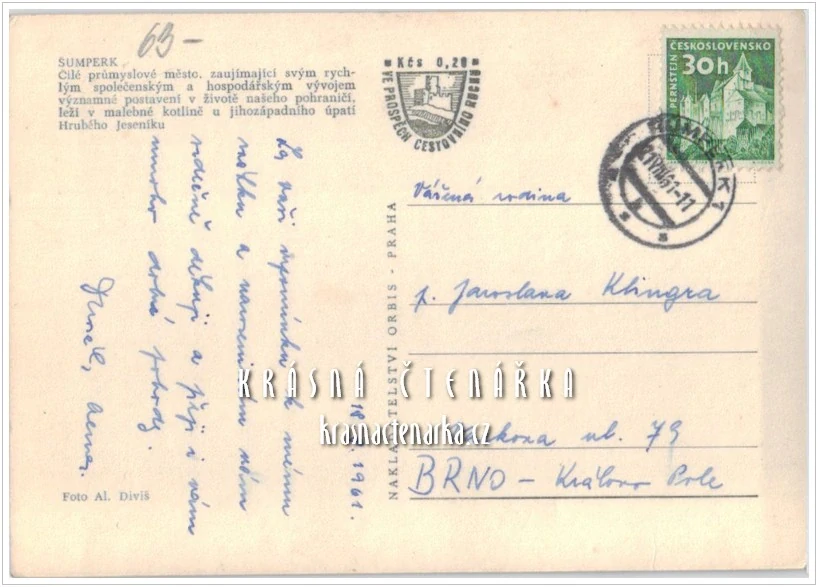 63-
ŠUMPERK
Čilé průmyslové město, zaujímající svým rych-
lým společenským a hospodářským vývojem
významné postavení v životě našeho pohraničí,
leží v malebné kotlině u jihozápadního úpatí
Hrubého Jeseníku
Kčs 0,20
VE PROSPĚCH CESTOVNÍHO RUCHU
PERNŠTEJN
ČESKOSLOVENSKO
30h
ŠUMPERK 1
Za Vaši vzpomínku k mému
svátku a
srdečně děkuji a přeji i Vám
mnoho dobré pohody.
18. 1961.
NAKLADATELSTVÍ ORBIS - PRAHA
Vážená rodina
p. Jaroslava Klingra
ul. 79
BRNO - Královo Pole
KRÁSNÁ ČTENÁŘKA
krasnactenarka.cz
Foto Al. Diviš